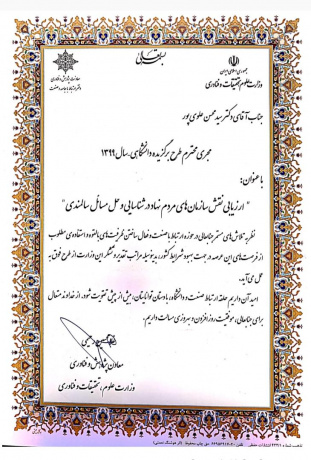 بسمه تعالی
جمهوری اسلامی ایران
وزارت علوم، تحقیقات و فناوری
معاونت پژوهش و فناوری
جناب آقای دکتر سید محسن علوی پور
مجری محترم طرح برگزیده دانشگاهی ـ سال ۱۳۹۹
با عنوان:
" ارزیابی نقش سازمان های مردم نهاد در شناسایی و حل مسائل سالمندی "
نظر به تلاش های مستمر جنابعالی در حوزه ارتباط با صنعت و فعال ساختن ظرفیت های بالقوه و استفاده ی مطلوب
از فرصت های این عرصه در جهت بهبود شرایط کشور، بدینوسیله مراتب تقدیر و تشکر این وزارت از طرح فوق به
عمل می آید.
امید آن داریم حلقه ارتباط صنعت و دانشگاه، با دستان توانایتان، بیش از پیش تقویت شود. از خداوند متعال
برای جنابعالی، موفقیت روزافزون و بهروزی مسألت داریم.
معاون پژوهش و فناوری
وزارت علوم، تحقیقات و فناوری